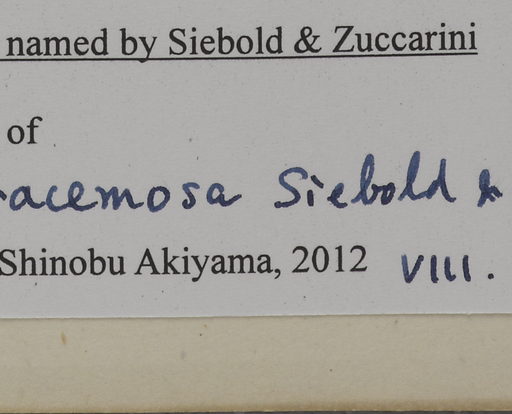 named by Siebold & Zuccarini
of
racemosa Siebold &
Shinobu Akiyama, 2012 VIII.